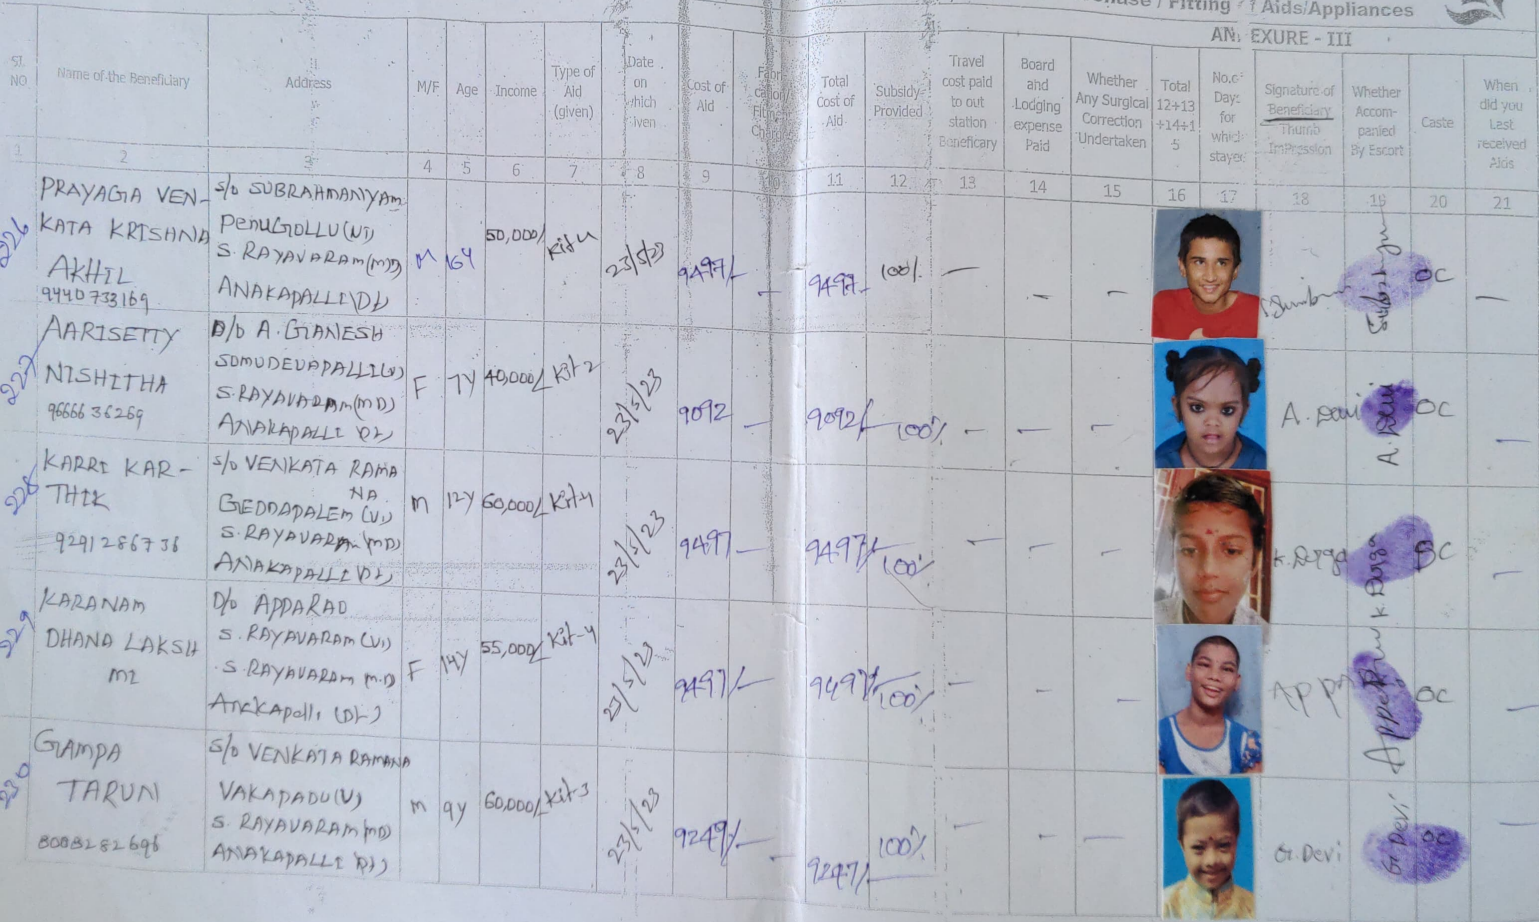 Fitting Aids/Appliances
EXURE - III
Sl. NO
Name of the Beneficiary
Address
M/F
Age
Income
Type of Aid (given)
Date on which
Cost of Aid
Total Cost of Aid
Subsidy Provided
Travel cost paid to out station Beneficary
Board and Lodging expense Paid
Whether Any Surgical Correction Undertaken
Total 12+13 +14+1 5
for
Signature of Beneficiary Thumb ImPression
Whether Accom- panied By Escort
Caste
When did you Last received Aids
1 2 3 4 5 6 7 8 9 10 11 12 13 14 15 16 17 18 19 20 21
226
PRAYAGA VEN-
KATA KRISHNA
AKHIL
9440733169
S/o SUBRAHMANYAM
PENUGOLLU(V)
S. RAYAVARAM(MD)
ANAKAPALLI(Dt)
M 16Y 50,000/ Kit4 23/5/23 9497/- 9497 100% —
OC
227
AARISETTY
NISHITHA
9666636269
D/o A. GANESH
SOMUDEVAPALLI(V)
S.RAYAVARAM(MD)
ANAKAPALLI (Dt)
F 7Y 40,000/ Kit2 23/5/23 9092 9092/ 100%
A. Devi A. Devi OC
228
KARRI KAR-
THIK
9291286736
S/o VENKATA RAMA
NA
GEDDAPALEM (V)
S.RAYAVARAM(MD)
ANAKAPALLI (Dt)
M 12Y 60,000/ Kit4 23/5/23 9497 9497/ 100%
K.Durga K Durga
229
KARANAM
DHANA LAKSH
MI
D/o APPARAO
S. RAYAVARAM(V)
S. RAYAVARAM M.D
Anakapalli (Dt)
F 14Y 55,000/ Kit-4 23/5/23 9497/- 9497/ 100%
OC
230
GAMPA
TARUN
8008282696
S/o VENKATA RAMANA
VAKAPADU(V)
S. RAYAVARAM(MD)
ANAKAPALLI (Dt)
M 9Y 60,000/ Kit3 23/5/23 9249/- 9247/ 100%
G.Devi G.Devi OC